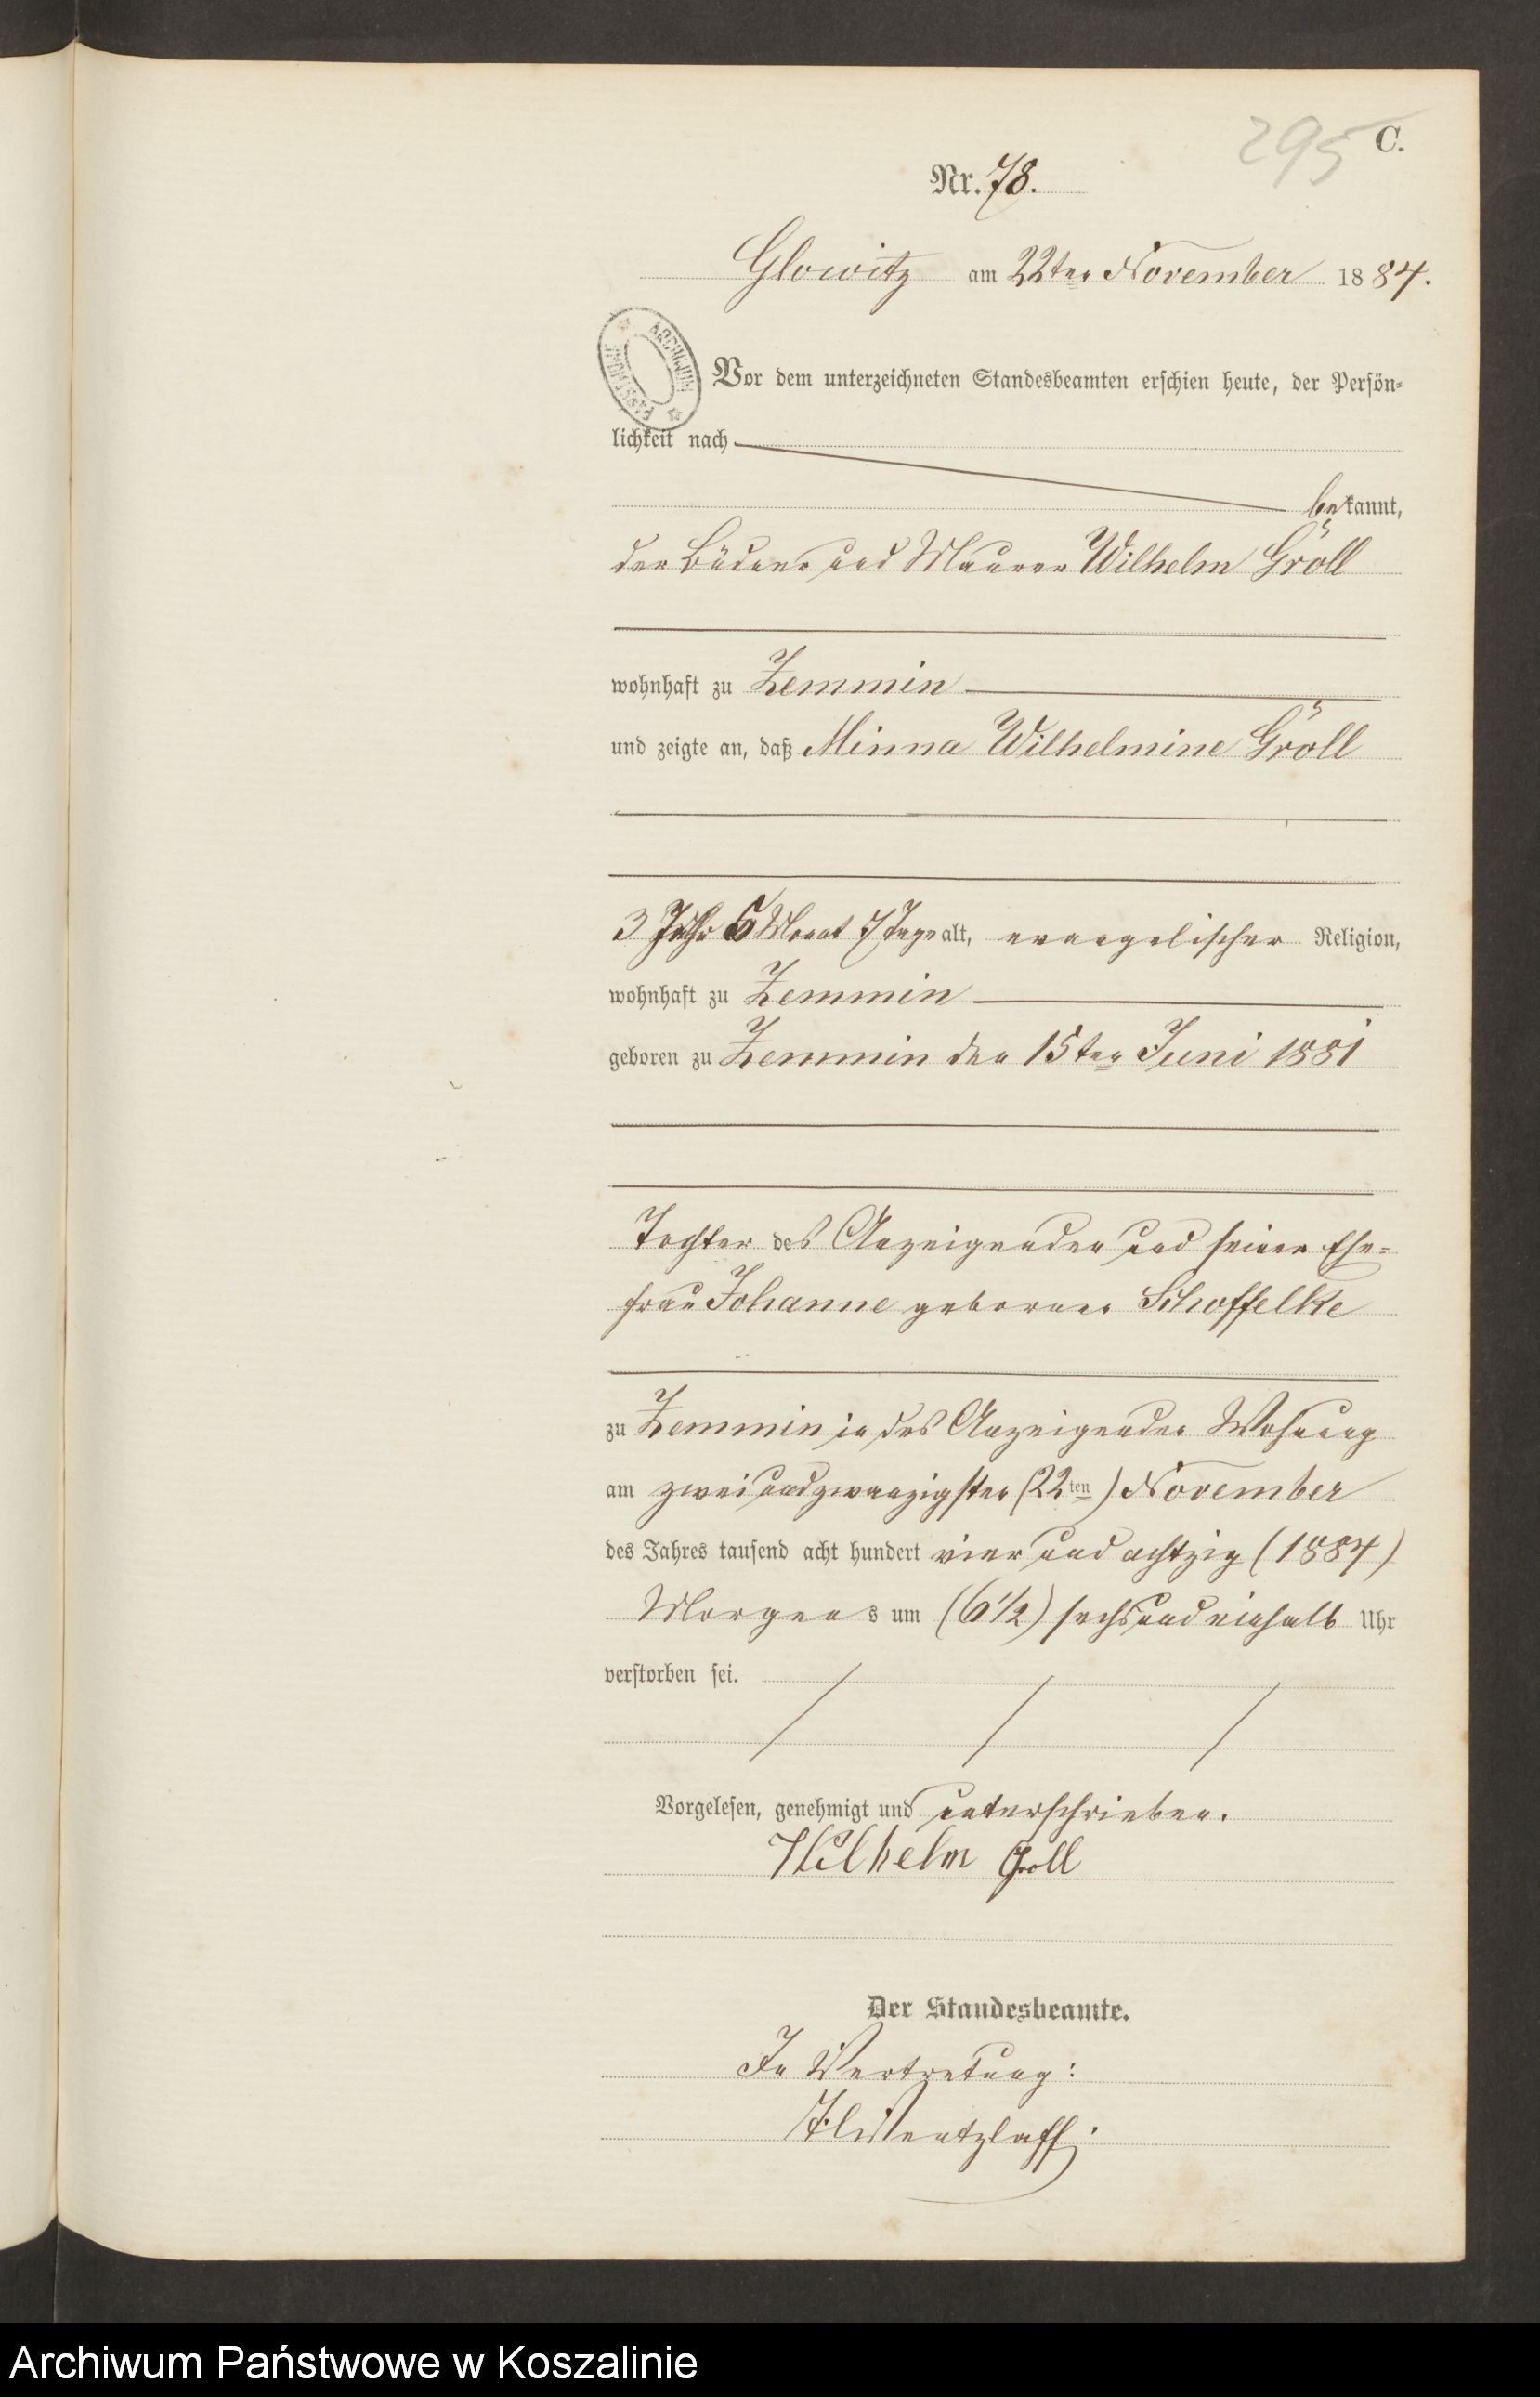 295 C.
Nr. 78.
Glowitz am 22ten November 1884.
ARCHIWUM PAŃSTWOWE
Vor dem unterzeichneten Standesbeamten erschien heute, der Persön-
lichkeit nach
bekannt,
der Büdner und Maurer Wilhelm Gröll
wohnhaft zu Zemmin
und zeigte an, daß Minna Wilhelmine Gröll
3 Jahr 5 Monat 7 Tage alt, evangelischer Religion,
wohnhaft zu Zemmin
geboren zu Zemmin den 15ten Juni 1881
Tochter des Anzeigenden und seiner Ehe-
frau Johanne geborner Schoffelke
zu Zemmin in des Anzeigenden Wohnung
am zwei und zwanzigsten (22ten) November
des Jahres tausend acht hundert vier und achtzig (1884)
Morgens um (6 1/2) sechs und einhalb Uhr
verstorben sei.
Vorgelesen, genehmigt und unterschrieben.
Wilhelm Groll
Der Standesbeamte.
In Vertretung:
Wentzlaff
Archiwum Państwowe w Koszalinie